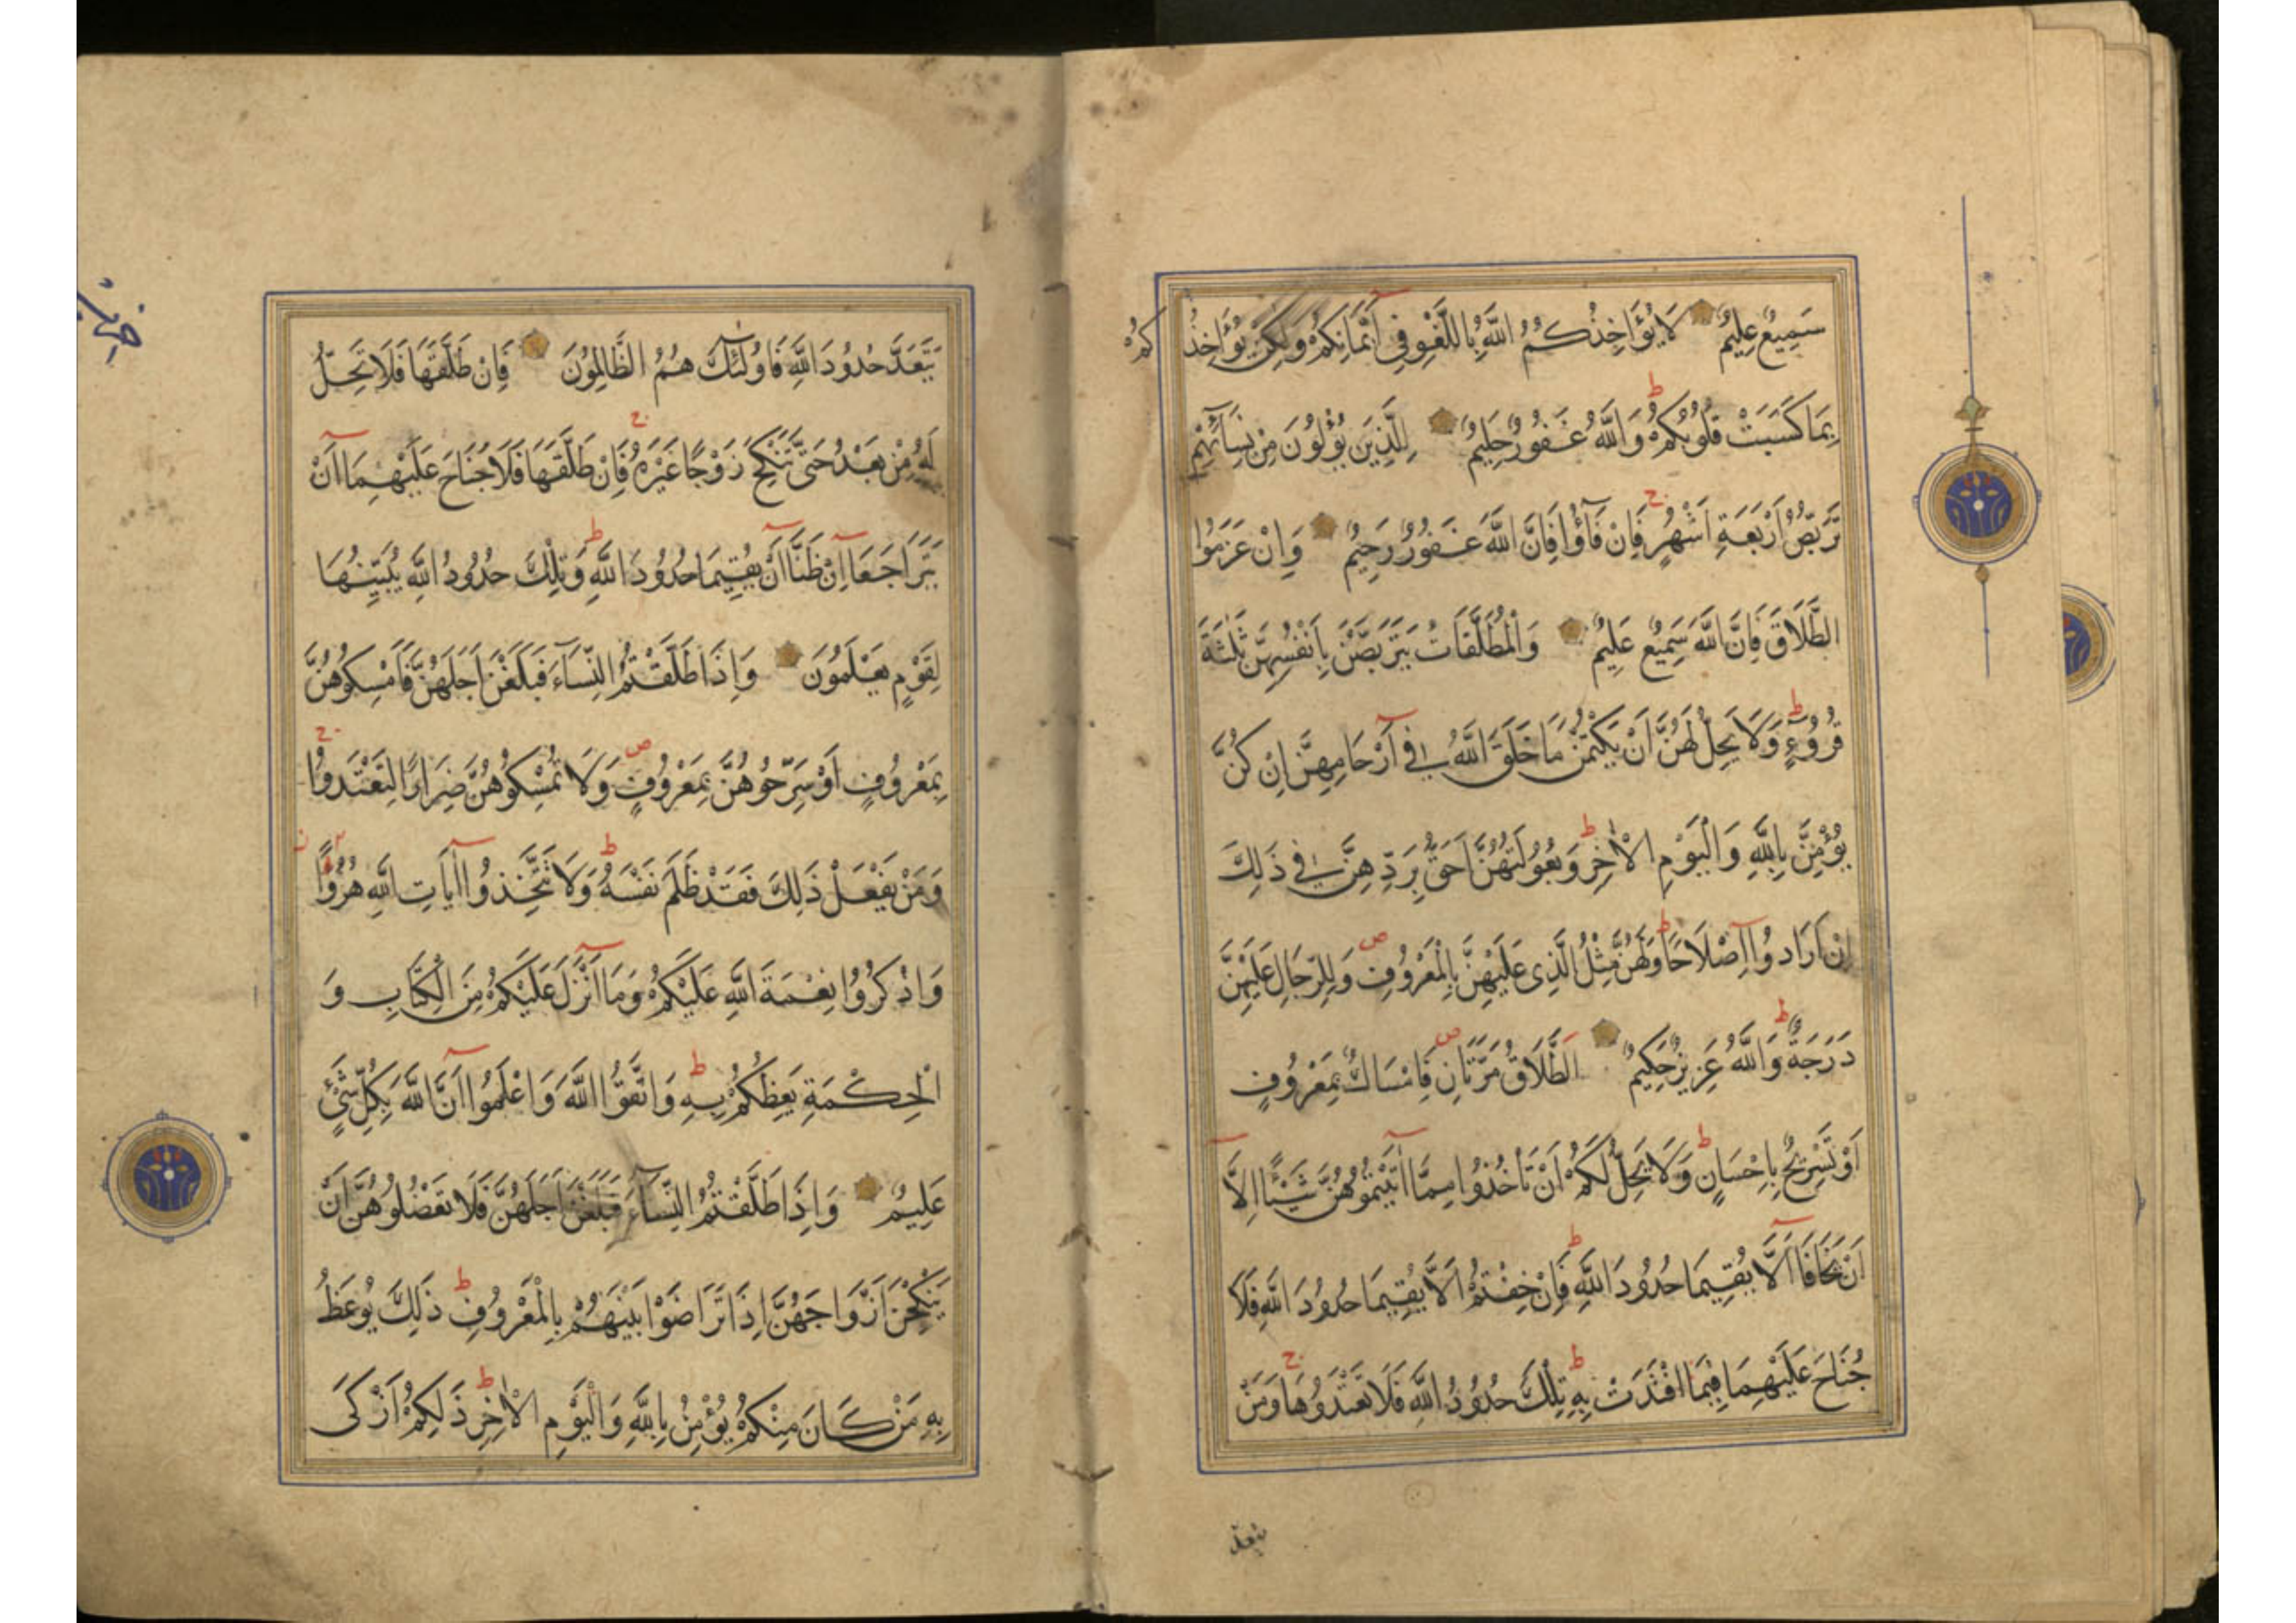 سَمِيعٌ عَلِيمٌ لَا يُؤَاخِذُكُمُ اللَّهُ بِاللَّغْوِ فِي أَيْمَانِكُمْ وَلَكِنْ يُؤَاخِذُكُمْ
بِمَا كَسَبَتْ قُلُوبُكُمْ وَاللَّهُ غَفُورٌ حَلِيمٌ لِلَّذِينَ يُؤْلُونَ مِنْ نِسَآئِهِمْ
تَرَبُّصُ أَرْبَعَةِ أَشْهُرٍ فَإِنْ فَآؤُا فَإِنَّ اللَّهَ غَفُورٌ رَحِيمٌ وَإِنْ عَزَمُوا
الطَّلَاقَ فَإِنَّ اللَّهَ سَمِيعٌ عَلِيمٌ وَالْمُطَلَّقَاتُ يَتَرَبَّصْنَ بِأَنْفُسِهِنَّ ثَلٰثَةَ
قُرُوءٍ وَلَا يَحِلُّ لَهُنَّ أَنْ يَكْتُمْنَ مَا خَلَقَ اللَّهُ فِي أَرْحَامِهِنَّ إِنْ كُنَّ
يُؤْمِنَّ بِاللَّهِ وَالْيَوْمِ الْأٰخِرِ وَبُعُولَتُهُنَّ أَحَقُّ بِرَدِّهِنَّ فِي ذَلِكَ
إِنْ أَرَادُوا إِصْلَاحًا وَلَهُنَّ مِثْلُ الَّذِي عَلَيْهِنَّ بِالْمَعْرُوفِ وَلِلرِّجَالِ عَلَيْهِنَّ
دَرَجَةٌ وَاللَّهُ عَزِيزٌ حَكِيمٌ الطَّلَاقُ مَرَّتَانِ فَإِمْسَاكٌ بِمَعْرُوفٍ
أَوْ تَسْرِيحٌ بِإِحْسَانٍ وَلَا يَحِلُّ لَكُمْ أَنْ تَأْخُذُوا مِمَّا أٰتَيْتُمُوهُنَّ شَيْئًا إِلَّا
أَنْ يَخَافَا أَلَّا يُقِيمَا حُدُودَ اللَّهِ فَإِنْ خِفْتُمْ أَلَّا يُقِيمَا حُدُودَ اللَّهِ فَلَا
جُنَاحَ عَلَيْهِمَا فِيمَا افْتَدَتْ بِهِ تِلْكَ حُدُودُ اللَّهِ فَلَا تَعْتَدُوهَا وَمَنْ
يتعد
يَتَعَدَّ حُدُودَ اللَّهِ فَأُولٰئِكَ هُمُ الظَّالِمُونَ فَإِنْ طَلَّقَهَا فَلَا تَحِلُّ
لَهُ مِنْ بَعْدُ حَتَّى تَنْكِحَ زَوْجًا غَيْرَهُ فَإِنْ طَلَّقَهَا فَلَا جُنَاحَ عَلَيْهِمَا أَنْ
يَتَرَاجَعَا إِنْ ظَنَّا أَنْ يُقِيمَا حُدُودَ اللَّهِ وَتِلْكَ حُدُودُ اللَّهِ يُبَيِّنُهَا
لِقَوْمٍ يَعْلَمُونَ وَإِذَا طَلَّقْتُمُ النِّسَآءَ فَبَلَغْنَ أَجَلَهُنَّ فَأَمْسِكُوهُنَّ
بِمَعْرُوفٍ أَوْ سَرِّحُوهُنَّ بِمَعْرُوفٍ وَلَا تُمْسِكُوهُنَّ ضِرَارًا لِتَعْتَدُوا
وَمَنْ يَفْعَلْ ذَلِكَ فَقَدْ ظَلَمَ نَفْسَهُ وَلَا تَتَّخِذُوا أٰيَاتِ اللَّهِ هُزُوًا
وَاذْكُرُوا نِعْمَةَ اللَّهِ عَلَيْكُمْ وَمَا أَنْزَلَ عَلَيْكُمْ مِنَ الْكِتَابِ وَ
الْحِكْمَةِ يَعِظُكُمْ بِهِ وَاتَّقُوا اللَّهَ وَاعْلَمُوا أَنَّ اللَّهَ بِكُلِّ شَيْئٍ
عَلِيمٌ وَإِذَا طَلَّقْتُمُ النِّسَآءَ فَبَلَغْنَ أَجَلَهُنَّ فَلَا تَعْضُلُوهُنَّ أَنْ
يَنْكِحْنَ أَزْوَاجَهُنَّ إِذَا تَرَاضَوْا بَيْنَهُمْ بِالْمَعْرُوفِ ذَلِكَ يُوعَظُ
بِهِ مَنْ كَانَ مِنْكُمْ يُؤْمِنُ بِاللَّهِ وَالْيَوْمِ الْأٰخِرِ ذَلِكُمْ أَزْكَى